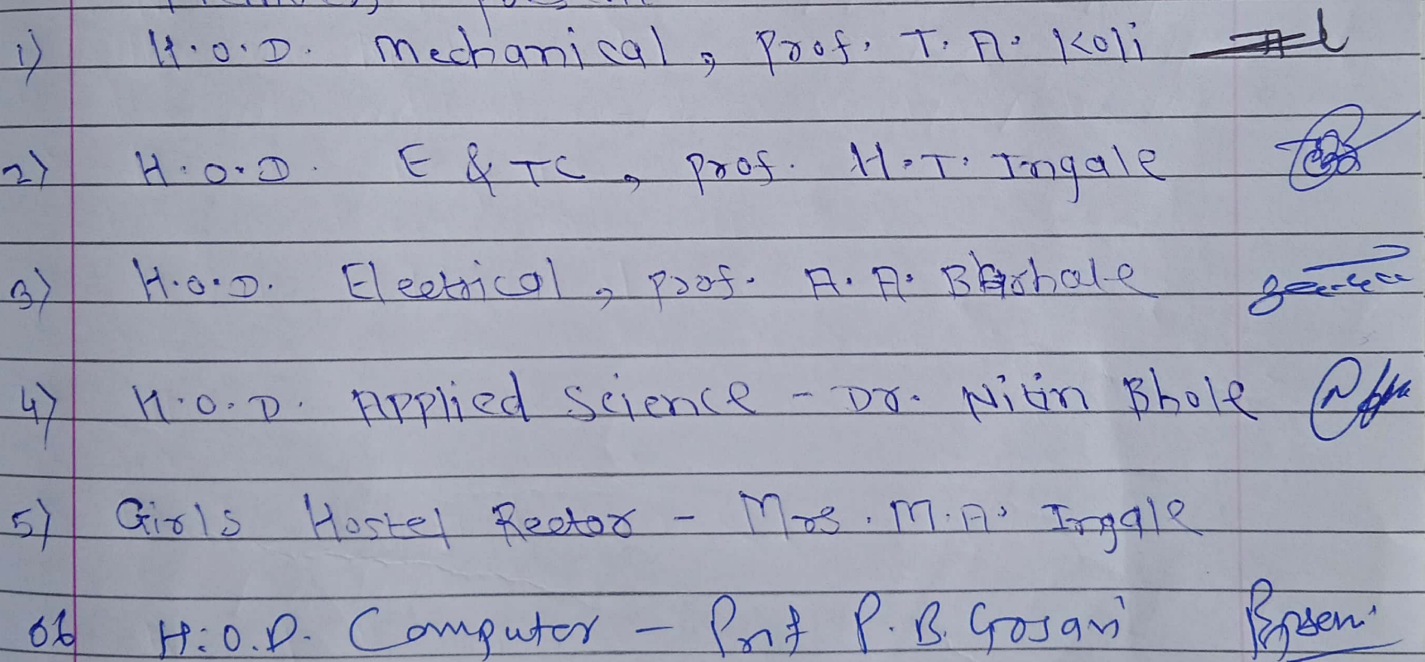 1) H.O.D. Mechanical, Prof. T. A. Koli
2) H.O.D. E & TC, Prof. H. T. Ingale
3) H.O.D. Electrical, Prof. A. A.
4) H.O.D. Applied Science - Dr. Nitin Bhole
5) Girls Hostel Rector - Mrs. M. A. Ingale
06 H.O.D. Computer - Prof P. B. Gosavi